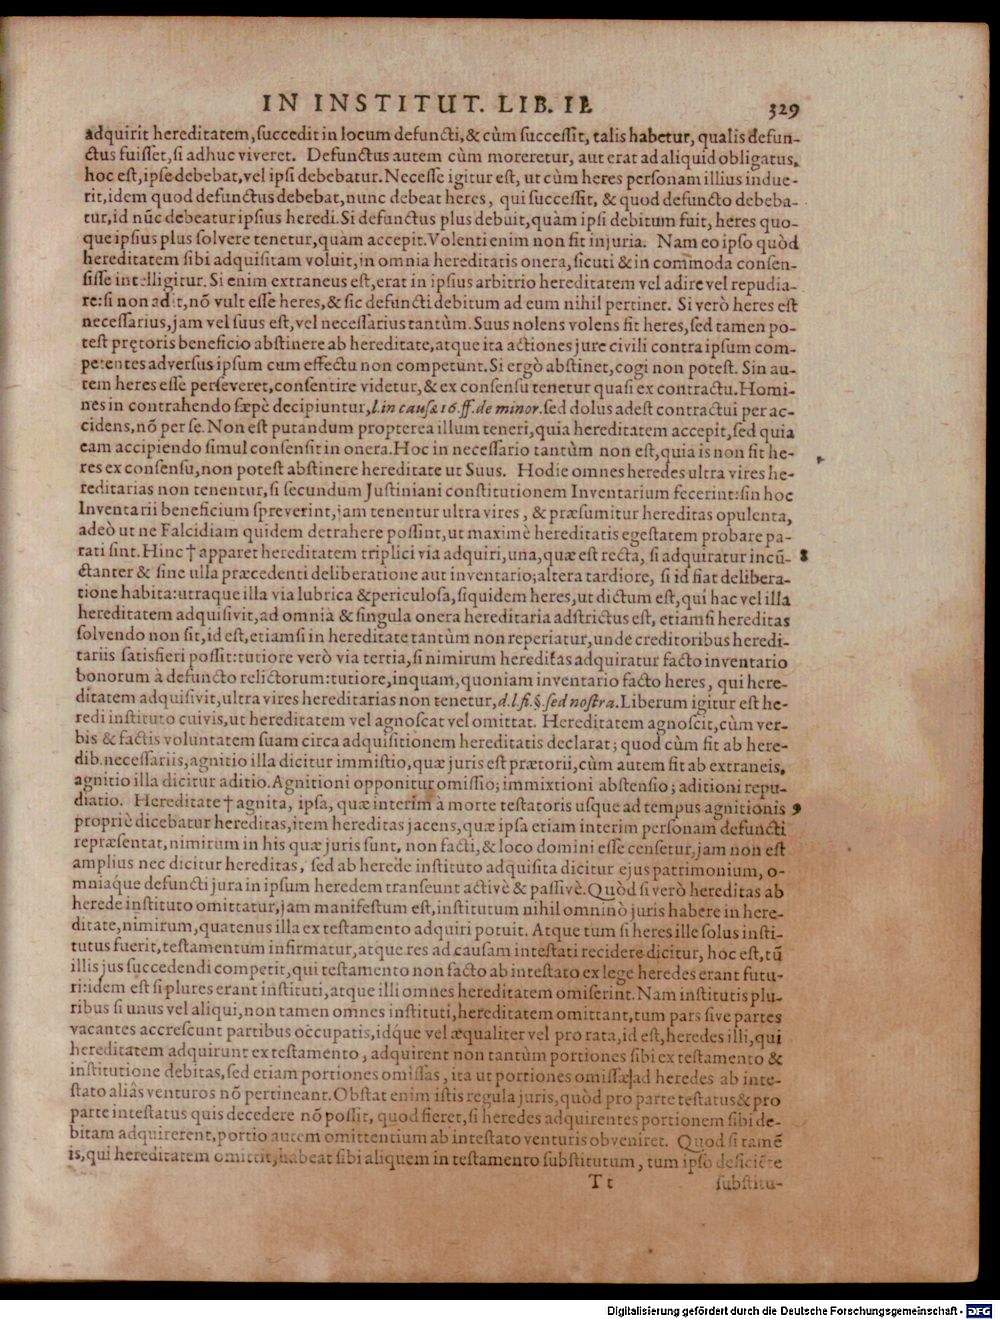 IN INSTITUT. LIB. II. 329
adquirit hereditatem, succedit in locum defuncti, & cùm successit, talis habetur, qualis defun-
ctus fuisset, si adhuc viveret. Defunctus autem cùm moreretur, aut erat ad aliquid obligatus,
hoc est, ipse debebat, vel ipsi debebatur. Necesse igitur est, ut cùm heres personam illius indue-
rit, idem quod defunctus debebat, nunc debeat heres, qui successit, & quod defuncto debeba-
tur, id nūc debeatur ipsius heredi. Si defunctus plus debuit, quàm ipsi debitum fuit, heres quo-
que ipsius plus solvere tenetur, quàm accepit. Volenti enim non fit injuria. Nam eo ipso quòd
hereditatem sibi adquisitam voluit, in omnia hereditatis onera, sicuti & in commoda consen-
sisse intelligitur. Si enim extraneus est, erat in ipsius arbitrio hereditatem vel adire vel repudia-
re: si non adit, nō vult esse heres, & sic defuncti debitum ad eum nihil pertinet. Si verò heres est
necessarius, jam vel suus est, vel necessarius tantùm. Suus nolens volens fit heres, sed tamen po-
test prętoris beneficio abstinere ab hereditate, atque ita actiones jure civili contra ipsum com-
petentes adversus ipsum cum effectu non competunt. Si ergò abstinet, cogi non potest. Sin au-
tem heres esse perseveret, consentire videtur, & ex consensu tenetur quasi ex contractu. Homi-
nes in contrahendo sæpè decipiuntur, l. in causæ 16. ff. de minor. sed dolus adest contractui per ac-
cidens, nō per se. Non est putandum propterea illum teneri, quia hereditatem accepit, sed quia
eam accipiendo simul consensit in onera. Hoc in necessario tantùm non est, quia is non fit he-
res ex consensu, non potest abstinere hereditate ut Suus. Hodie omnes heredes ultra vires he-
reditarias non tenentur, si secundum Justiniani constitutionem Inventarium fecerint: sin hoc
Inventarii beneficium spreverint, jam tenentur ultra vires, & præsumitur hereditas opulenta,
adeò ut ne Falcidiam quidem detrahere possint, ut maximè hereditatis egestatem probare pa-
rati sint. Hinc † apparet hereditatem triplici via adquiri, una, quæ est recta, si adquiratur incū- 8
ctanter & sine ulla præcedenti deliberatione aut inventario; altera tardiore, si id fiat delibera-
tione habita: utraque illa via lubrica & periculosa, siquidem heres, ut dictum est, qui hac vel illa
hereditatem adquisivit, ad omnia & singula onera hereditaria adstrictus est, etiamsi hereditas
solvendo non sit, id est, etiamsi in hereditate tantùm non reperiatur, unde creditoribus heredi-
tariis satisfieri possit: tutiore verò via tertia, si nimirum hereditas adquiratur facto inventario
bonorum à defuncto relictorum: tutiore, inquam, quoniam inventario facto heres, qui here-
ditatem adquisivit, ultra vires hereditarias non tenetur, d. l. fi. §. sed nostra. Liberum igitur est he-
redi instituto cuivis, ut hereditatem vel agnoscat vel omittat. Hereditatem agnoscit, cùm ver-
bis & factis voluntatem suam circa adquisitionem hereditatis declarat; quod cùm fit ab here-
dib. necessariis, agnitio illa dicitur immistio, quæ juris est prætorii, cùm autem fit ab extraneis,
agnitio illa dicitur aditio. Agnitioni opponitur omissio; immixtioni abstensio; aditioni repu-
diatio. Hereditate † agnita, ipsa, quæ interim à morte testatoris usque ad tempus agnitionis 9
propriè dicebatur hereditas, item hereditas jacens, quæ ipsa etiam interim personam defuncti
repræsentat, nimirum in his quæ juris sunt, non facti, & loco domini esse censetur, jam non est
amplius nec dicitur hereditas, sed ab herede instituto adquisita dicitur ejus patrimonium, o-
mniaq́ue defuncti jura in ipsum heredem transeunt activè & passivè. Quòd si verò hereditas ab
herede instituto omittatur, jam manifestum est, institutum nihil omninò juris habere in here-
ditate, nimirum, quatenus illa ex testamento adquiri potuit. Atque tum si heres ille solus insti-
tutus fuerit, testamentum infirmatur, atque res ad causam intestati recidere dicitur, hoc est, tū
illis jus succedendi competit, qui testamento non facto ab intestato ex lege heredes erant futu-
ri: idem est si plures erant instituti, atque illi omnes hereditatem omiserint. Nam institutis plu-
ribus si unus vel aliqui, non tamen omnes instituti, hereditatem omittant, tum pars sive partes
vacantes accrescunt partibus occupatis, idq́ue vel æqualiter vel pro rata, id est, heredes illi, qui
hereditatem adquirunt ex testamento, adquirent non tantùm portiones sibi ex testamento &
institutione debitas, sed etiam portiones omissas, ita ut portiones omissæ ad heredes ab inte-
stato aliàs venturos nō pertineant. Obstat enim istis regula juris, quòd pro parte testatus & pro
parte intestatus quis decedere nō possit, quod fieret, si heredes adquirentes portionem sibi de-
bitam adquirerent, portio autem omittentium ab intestato venturis obveniret. Quod si tamē
is, qui hereditatem omittit, habeat sibi aliquem in testamento substitutum, tum ipso deficiēte
Tt substitu-
Digitalisierung gefördert durch die Deutsche Forschungsgemeinschaft - DFG